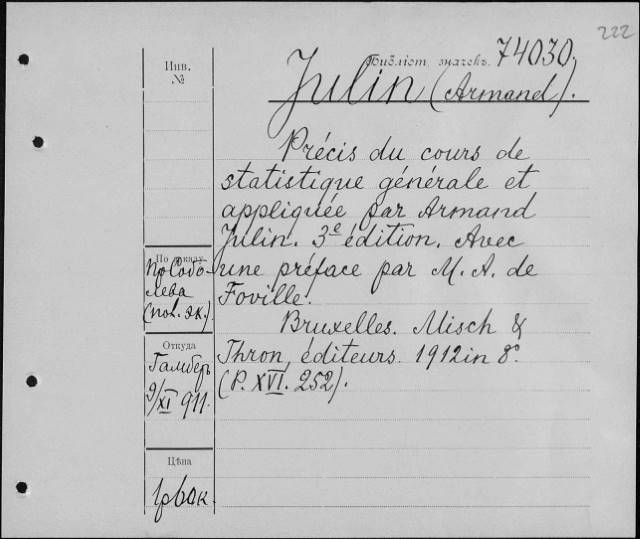 222
Библіот. значекъ. 74030.
Инв.
№
Julin (Armand).
Précis du cours de
statistique générale et
appliquée par Armand
Julin. 3e édition. Avec
une préface par M. A. de
Foville.
Bruxelles. Misch &
Thron, éditeurs. 1912 in 8°.
(P. XVI. 252).
По указу
пр Собо-
лева
(пол. эк.)
Откуда
Гамберъ
9/XI 911.
Цѣна
1р 60к.